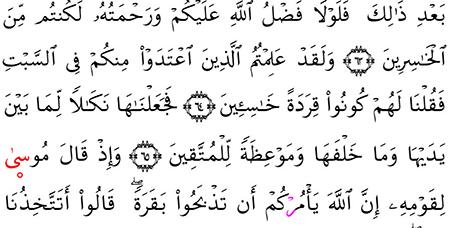 بَعْدِ ذَٰلِكَ فَلَوْلَا فَضْلُ اللَّهِ عَلَيْكُمْ وَرَحْمَتُهُۥ لَكُنتُم مِّنَ
الْخَٰسِرِينَ ٦٣ وَلَقَدْ عَلِمْتُمُ الَّذِينَ اعْتَدَوْا۟ مِنكُمْ فِى السَّبْتِ
فَقُلْنَا لَهُمْ كُونُوا۟ قِرَدَةً خَٰسِـِٔينَ ٦٤ فَجَعَلْنَٰهَا نَكَٰلًا لِّمَا بَيْنَ
يَدَيْهَا وَمَا خَلْفَهَا وَمَوْعِظَةً لِّلْمُتَّقِينَ ٦٥ وَإِذْ قَالَ مُوسىٰ
لِقَوْمِهِۦ إِنَّ اللَّهَ يَأْمُرْكُمْ أَن تَذْبَحُوا۟ بَقَرَةًۖ قَالُوٓا۟ أَتَتَّخِذُنَا